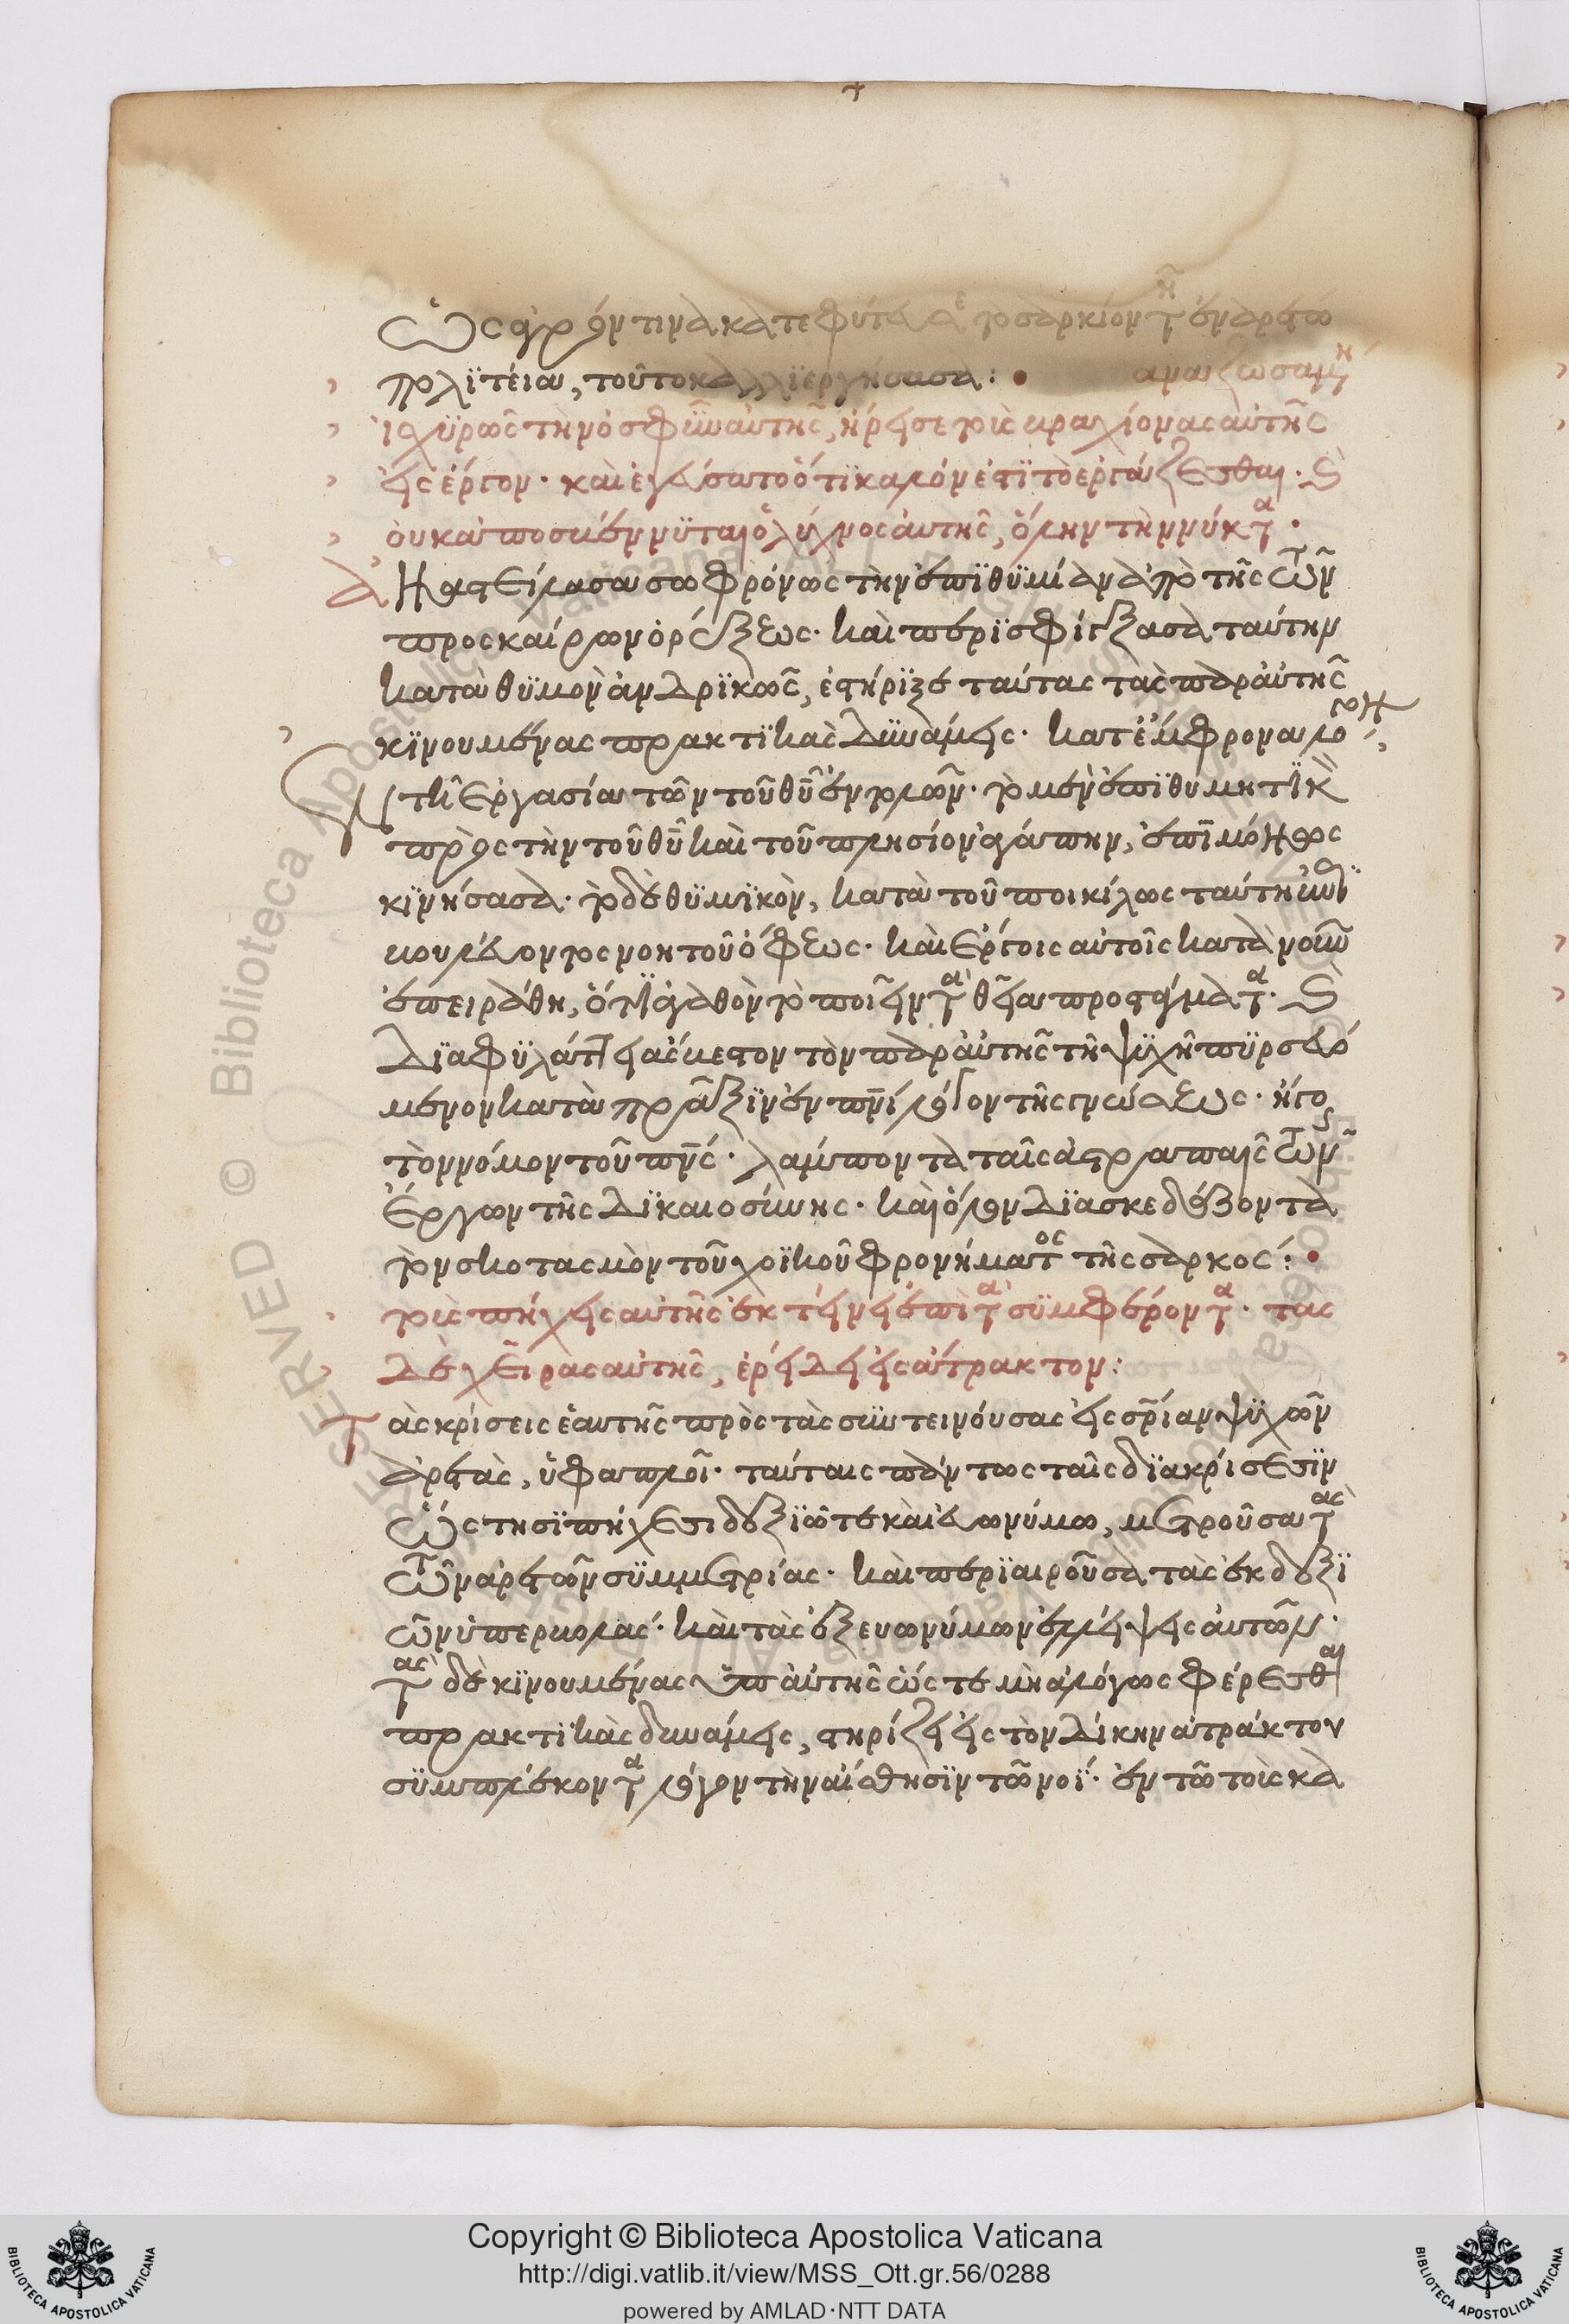 Ὡς ἀγρόν τινα κατεφύτευσε τὸ σαρκίον τῆ ἐναρέτω
πολιτεία, τοῦτο καλλιεργήσασα:
ἀναζωσαμένη
ἰσχυρῶς τὴν ὀσφὺν αὐτῆς, ἤρεισε τοὺς βραχίονας αὐτῆς
εἰς ἔργον· καὶ ἐγεύσατο ὅτι καλόν ἐστι τὸ ἐργάζεσθαι· καὶ
οὐκ ἀποσβέννυται ὁ λύχνος αὐτῆς, ὅλην τὴν νύκτα·
Διαστείλασα σωφρόνως τὴν ἐπιθυμίαν ἀπὸ τῆς τῶν
προσκαίρων ὀρέξεως· καὶ περισφίγξασα ταύτην
κατὰ θυμὸν ἀνδρικῶς, ἐστήριξε ταύτας τὰς παρ' αὐτῆς
κινουμένας πρακτικὰς δυνάμεις·
τῆ ἐργασία τῶν τοῦ θυ ἐντολῶν· τὸ μὲν ἐπιθυμητικὸν
πρὸς τὴν τοῦ θυ καὶ τοῦ πλησίον ἀγάπην,
κινήσασα· τὸ δὲ θυμικὸν, κατὰ τοῦ ποικίλως ταύτη
βουλεύοντος νοητοῦ ὄφεως· καὶ ἔργοις αὐτοῖς
ἐπειράθη, ὅτι ἀγαθὸν τὸ ποιεῖν τὰ θεῖα προστάγματα· καὶ
διαφυλάττει ἄσβεστον τὸν παρ' αὐτῆς τῆ ψυχῆ πυρσευό
μενον κατὰ πρᾶξιν ἐν πνι λόγον τῆς γνώσεως· ἤτοι
τὸν νόμον τοῦ πνς· λάμποντα ταῖς ἀστραπαῖς τῶν
ἔργων τῆς δικαιοσύνης· καὶ ὅλον διασκεδάζοντα
τὸν σκοτασμὸν τοῦ χοϊκοῦ φρονήματος τῆς σαρκός:
τοὺς πήχεις αὐτῆς ἐκτείνει ἐπὶ τὰ συμφέροντα· τὰς
δὲ χεῖρας αὐτῆς, ἐρείδει εἰς ἄτρακτον:
Τὰς κρίσεις ἑαυτῆς πρὸς τὰς συντεινούσας εἰς σρίαν ψυχῶν
ἀρετὰς, ὑφαπλοῖ· ταύταις πάντως ταῖς διακρίσεσιν
ὥς τησι πήχεσι δεξιῶ τε καὶ εὐωνύμω, μετροῦσα τὰς
τῶν ἀρετῶν συμμετρίας· καὶ περιαιροῦσα τὰς ἐκ δεξι
ῶν ὑπερβολάς· καὶ τὰς ἐξ ευωνύμων ἐλλείψεις αὐτῶν·
τὰς δὲ κινουμένας ὑπ' αὐτῆς ὥς τε μὴ ἀλόγως φέρεσθαι
πρακτικὰς δυνάμεις, στηρίζει εἰς τὸν δίκην ἀτράκτου
συμπλέκοντα λόγον τὴν αἴσθησιν τῶ νοῒ· ἐν τῶ τοῖς κα
Copyright © Biblioteca Apostolica Vaticana
http://digi.vatlib.it/view/MSS_Ott.gr.56/0288
powered by AMLAD·NTT DATA